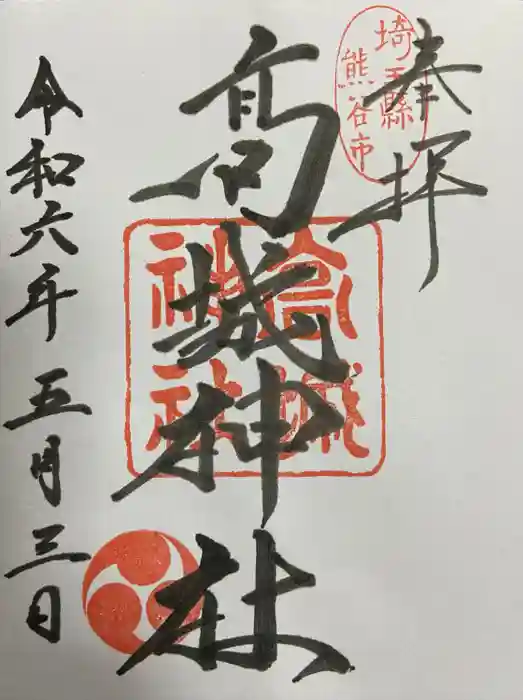 奉拝
埼玉縣
熊谷市
高城神社
高城
神社
令和六年五月三日